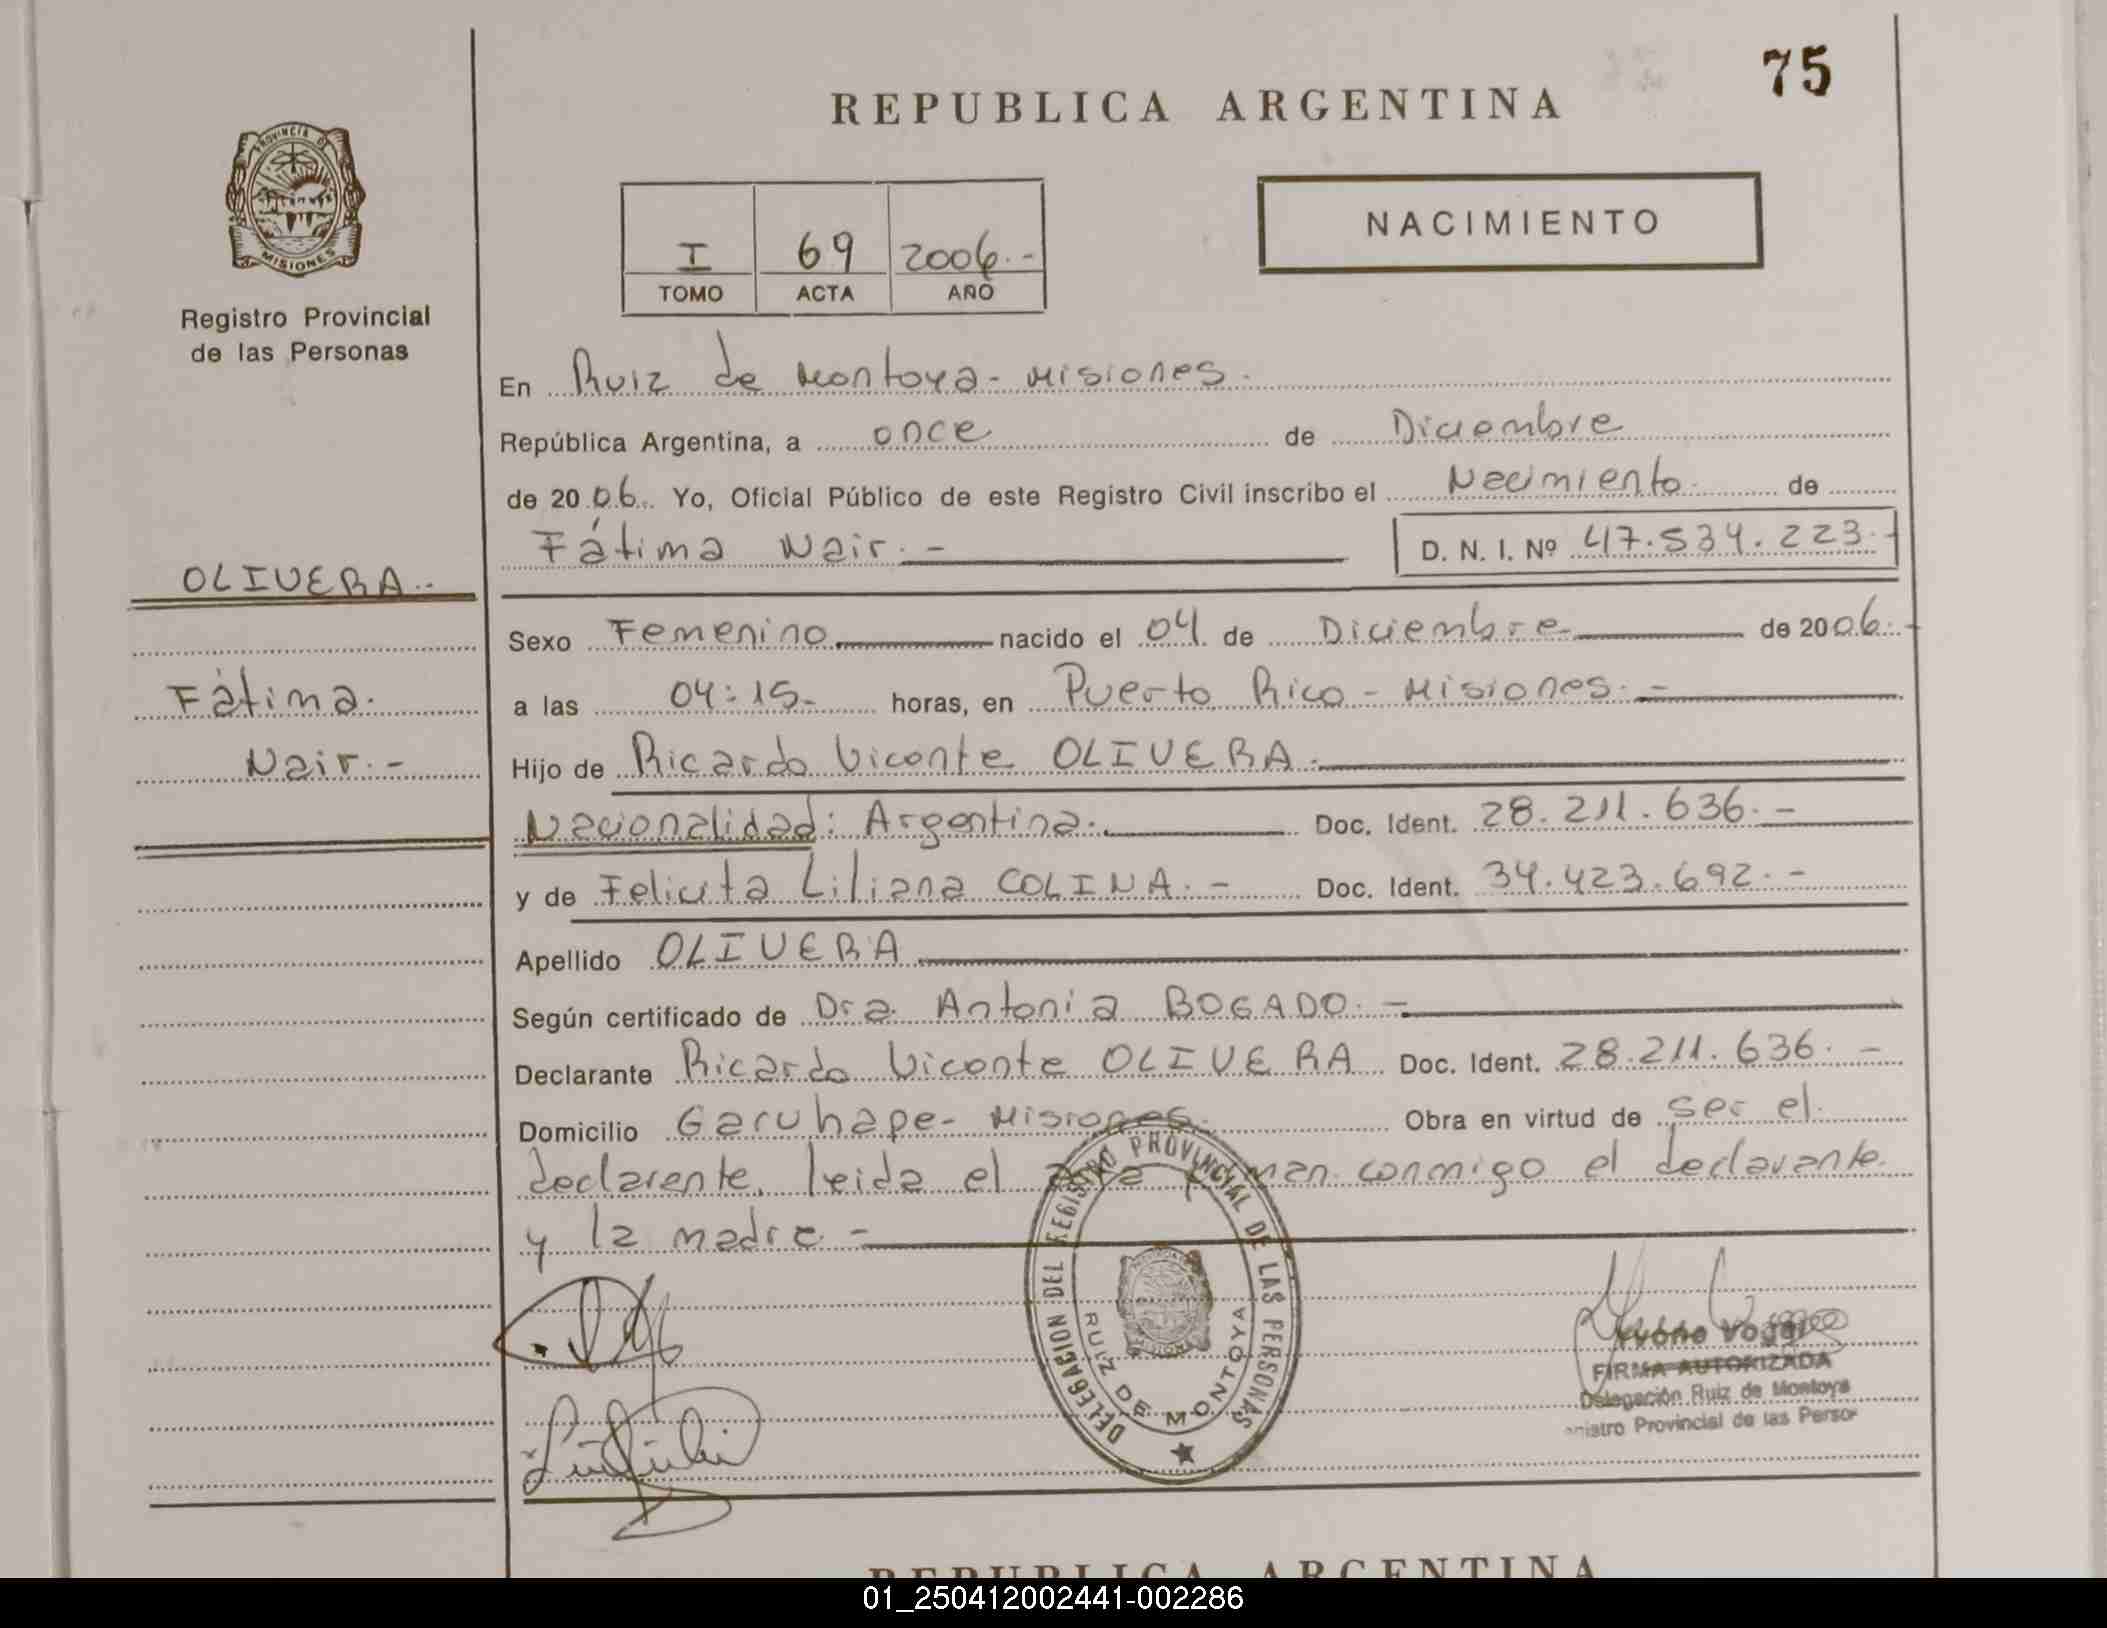 75
REPUBLICA ARGENTINA
PROVINCIA DE
MISIONES
Registro Provincial
de las Personas
I 69 2006.-
TOMO ACTA AÑO
NACIMIENTO
En Ruiz de Montoya - Misiones.
República Argentina, a once de Diciembre
de 2006. Yo, Oficial Público de este Registro Civil inscribo el Nacimiento de
Fátima Nair.- D. N. I. Nº 47.534.223.-
OLIVERA.-
Fátima.
Nair.-
Sexo Femenino nacido el 04 de Diciembre de 2006.-
a las 04:15.- horas, en Puerto Rico - Misiones.-
Hijo de Ricardo Vicente OLIVERA.
Nacionalidad: Argentina. Doc. Ident. 28.211.636.-
y de Felicita Liliana COLINA.- Doc. Ident. 34.423.692.-
Apellido OLIVERA
Según certificado de Dra. Antonia BOGADO.-
Declarante Ricardo Vicente OLIVERA Doc. Ident. 28.211.636.-
Domicilio Garuhape - Misiones. Obra en virtud de ser el
declarante, leida el acta firman conmigo el declarante
y la madre.-
DELEGACION DEL REGISTRO PROVINCIAL DE LAS PERSONAS
RUIZ DE MONTOYA
FIRMA AUTORIZADA
Delegación Ruiz de Montoya
Provincial de las
REPUBLICA ARGENTINA
01_250412002441-002286